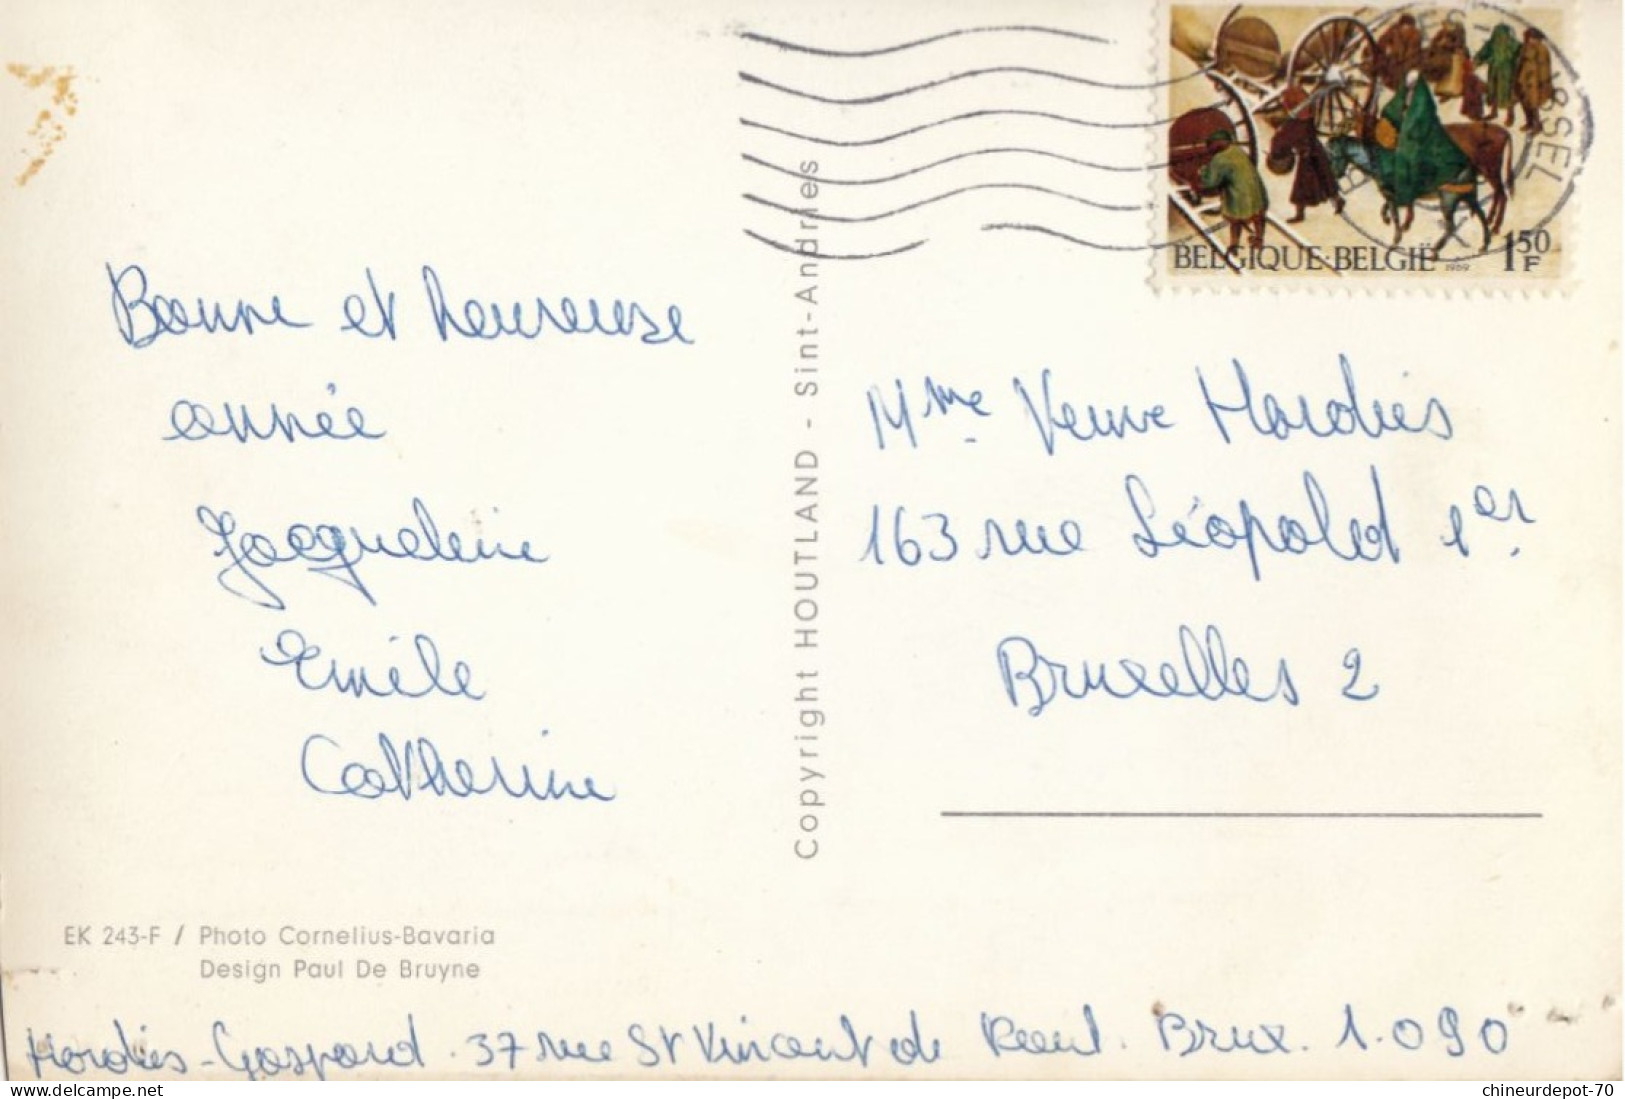 Bonne et heureuse
année
Jacqueline
Emile
Catherine
EK 243-F / Photo Cornelius-Bavaria
Design Paul De Bruyne
Copyright HOUTLAND - Sint-Andries
BELGIQUE·BELGIË 1969 1 50 F
Mme Veuve Hardies
163 rue Léopold 1er.
Bruxelles 2
Hardies-Gaspard. 37 rue St Vincent de Paul. Brux. 1.090
chineurdepot-70